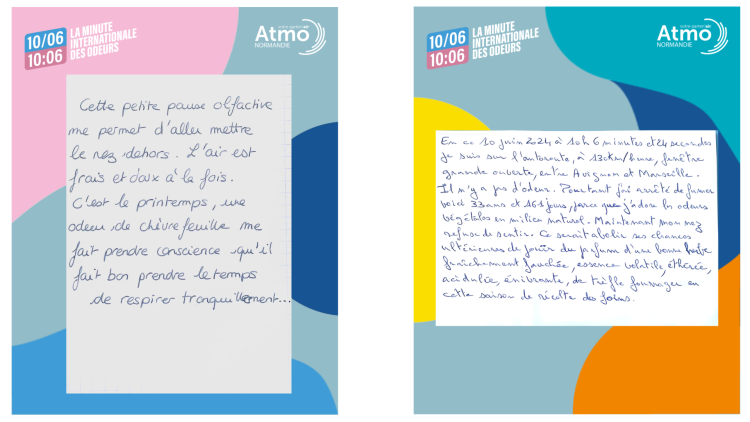 10/06
10:06
LA MINUTE
INTERNATIONALE
DES ODEURS
Atmo
NORMANDIE
Cette petite pause olfactive
me permet d'aller mettre
le nez dehors. L'air est
frais et doux à la fois.
C'est le printemps, une
odeur de chèvrefeuille me
fait prendre conscience qu'il
fait bon prendre le temps
de respirer tranquillement...
10/06
10:06
LA MINUTE
INTERNATIONALE
DES ODEURS
Atmo
NORMANDIE
En ce 10 juin 2024 à 10h 6 minutes et 24 secondes
je suis sur l'autoroute, à 130km/heure, fenêtre
grande ouverte, entre Avignon et Marseille.
Il n'y a pas d'odeur. Pourtant j'ai arrêté de fumer
voici 33 ans et 161 jours, parce que j'adore les odeurs
végétales en milieu naturel. Maintenant mon nez
refuse de sentir. Ce serait abolir ses chances
ultérieures de jouir du parfum d'une bonne herbe
fraîchement fauchée, essence volatile, éthérée,
acidulée, énivrante, de trèfle fourrager en
cette saison de récolte des foins.